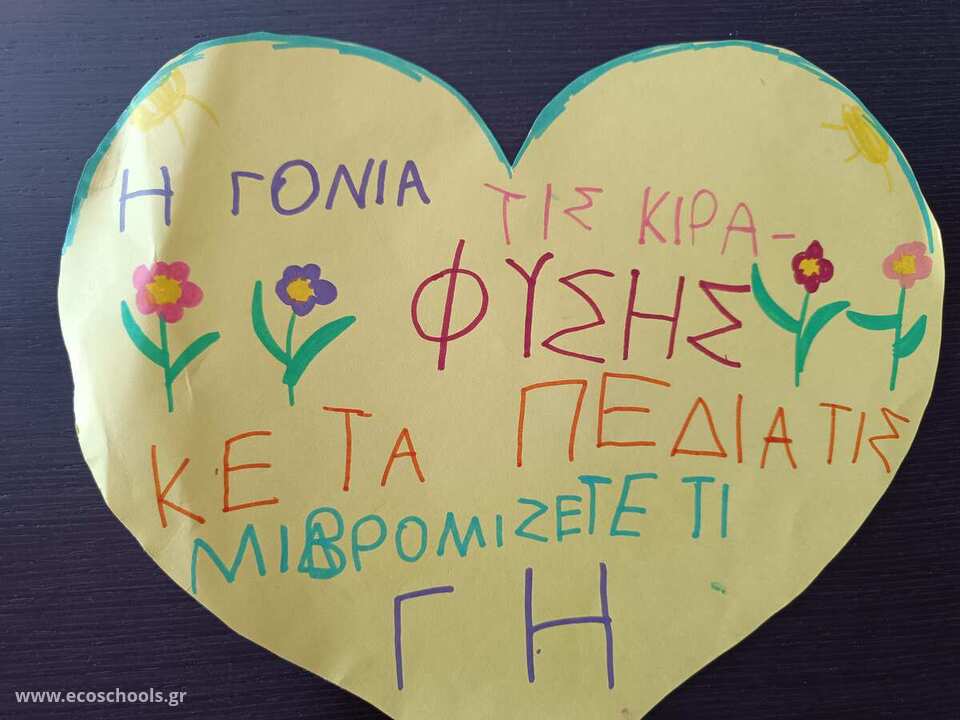 Η ΓΟΝΙΑ ΤΙΣ ΚΙΡΑ-
ΦΥΣΗΣ
ΚΕ ΤΑ ΠΕΔΙΑ ΤΙΣ
ΜΙΒΡΟΜΙΖΕΤΕ ΤΙ
ΓΗ
www.ecoschools.gr